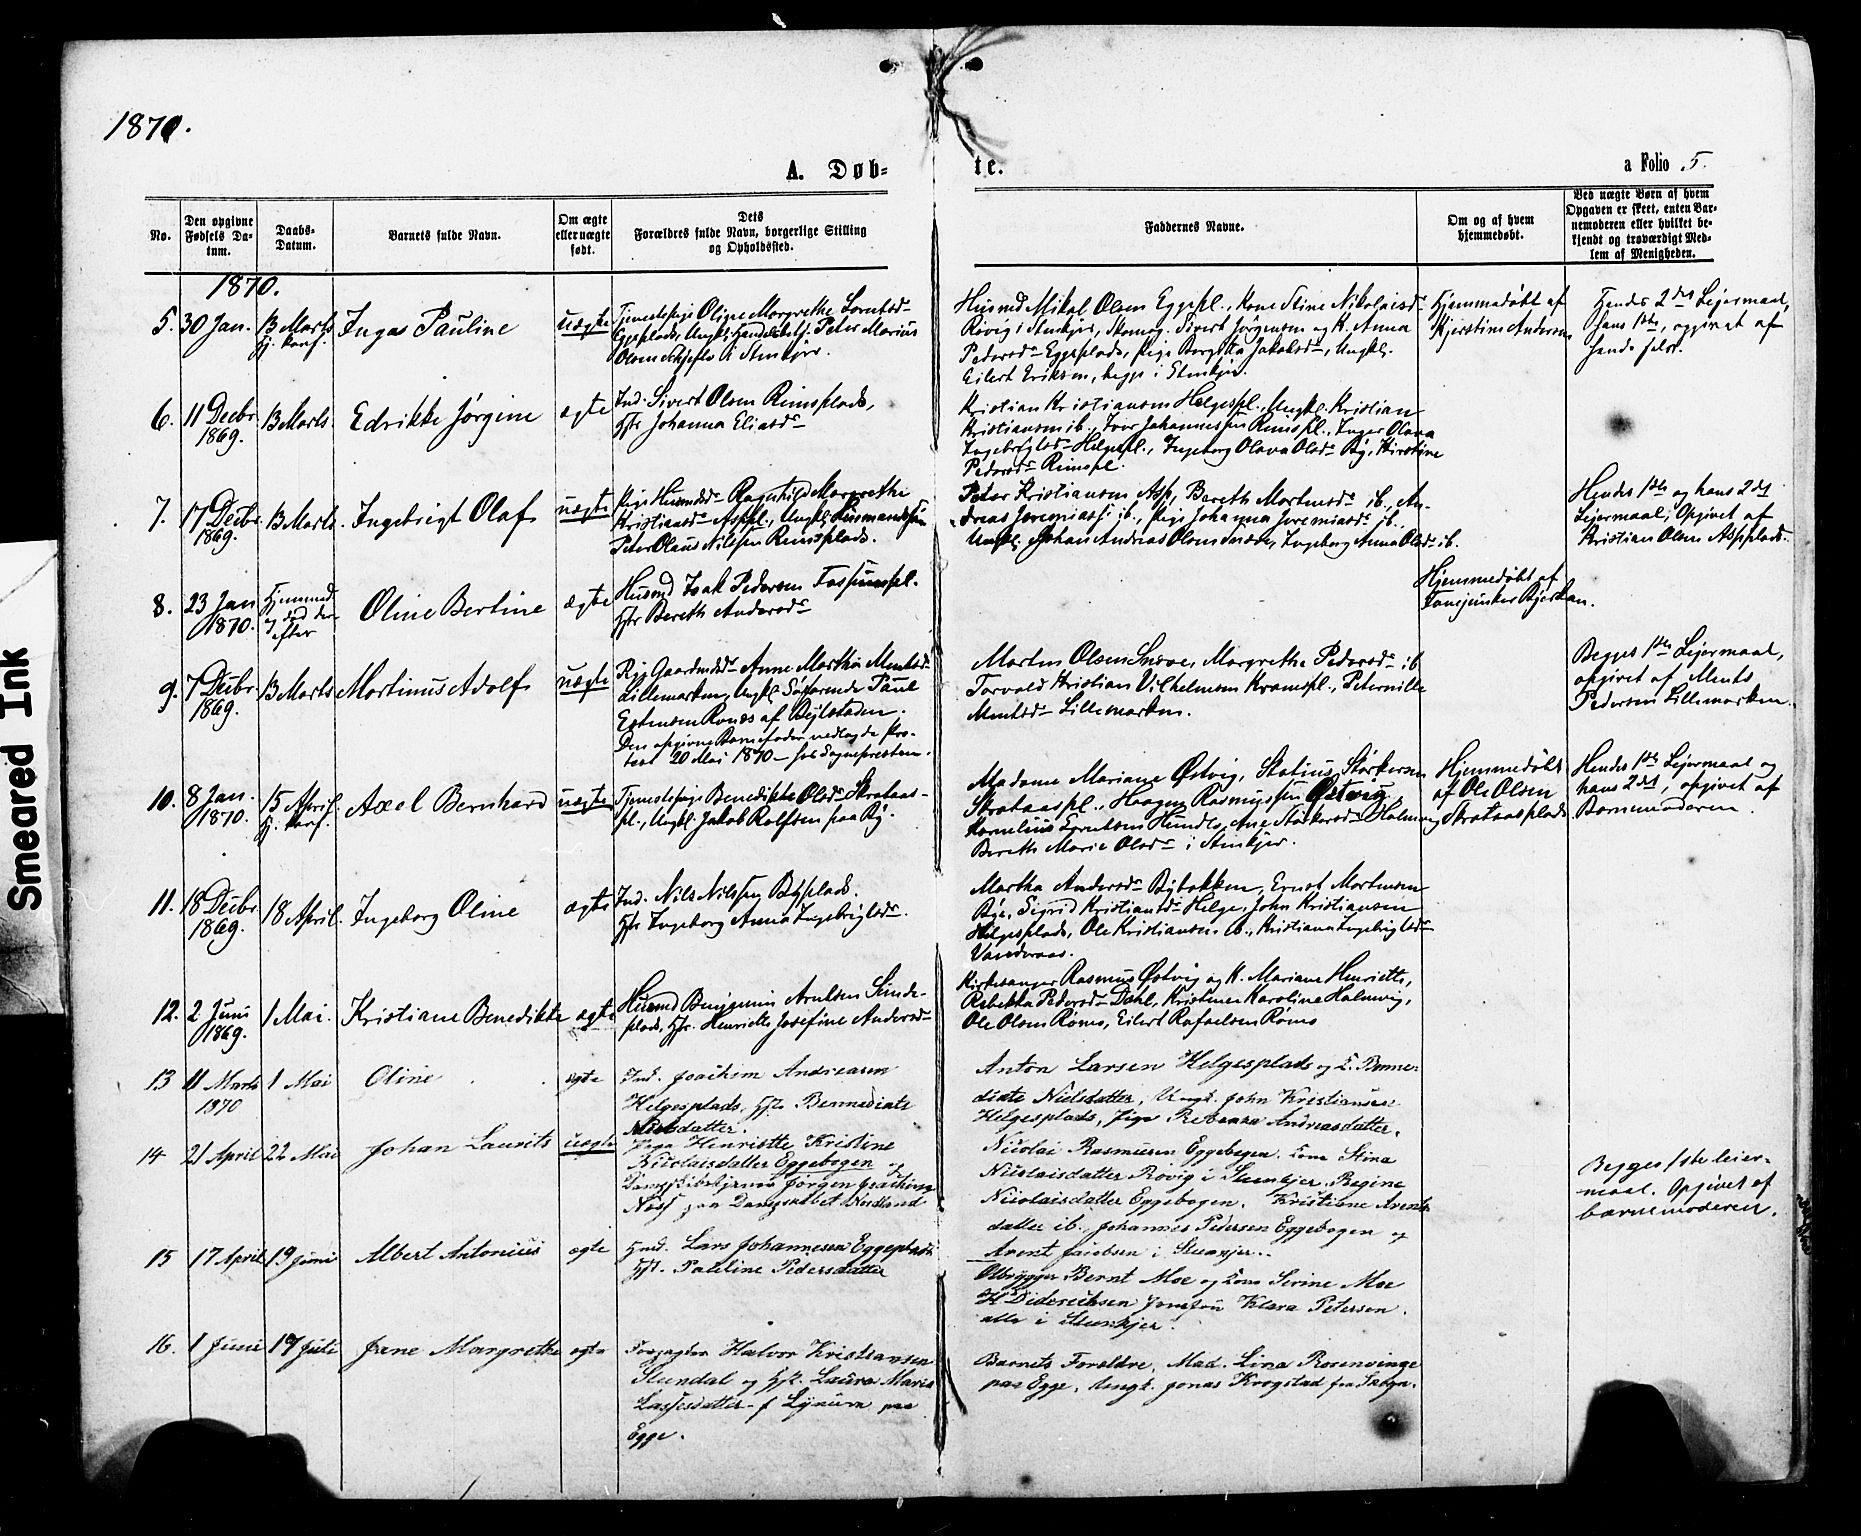 1870.
A. Døb-
te.
a Folio 5.
No.
Den opgivne
Fødsels Da-
tum.
Daabs-
Datum.
Barnets fulde Navn.
Om ægte
eller uægte
født.
Dets
Forældres fulde Navn, borgerlige Stilling
og Opholdssted.
Faddernes Navne.
Om og af hvem
hjemmedøbt.
Ved uægte Børn af hvem
Opgaven er skeet, enten Bar-
nemoderen eller hvilket be-
kjendt og troværdigt Med-
lem af Menigheden.
1870.
5. 30 Jan. 13 Marts Inga Pauline uægte
Tjenestepige Oline Margrethe
Eggeplads, Ungkl. Peter Marius
Olsen i Stenkjær.
Husmd Mikal Olsen Eggepl., Kone Stine Nikolaisdr
Røvig i Stenkjær, Skomag. Sivert Jørgensen og K. Anna
Pedersdr Eggeplads, Pige Jakobsdr, Ungkl.
Eilert Eriksen, begge i Stenkjær.
Hjemmedøbt af
Kjerstine Andersen
Hendes 2det Lejermaal,
hans 1ste, opgivet af
hende selv.
6. 11 Decbr 13 Marts Edrikke Jørgine ægte
1869.
Ind. Sivert Olsen Reinsplads,
Hstr Johanna Eliasdr
Kristian Kristiansen Helgespl., Ungkl. Kristian
Kristiansen ib., Iver Johannessen Reinspl., Inger Olava
Ingebrigtsdr Helgespl., Ingeborg Olava Olsdr By, Kirstine
Pedersdr Reinspl.
7. 17 Decbr 13 Marts. Ingebrigt Olaf uægte
1869.
Pige Husmdsdr Ragnhild Margrethe
Kristiansdr Aspepl., Ungkl. Husmandssøn
Peter Olaus Nilssen Reinsplads.
Peter Kristiansen Asp, Bereth Mortensdr ib., An-
dreas Jeremiass. ib., Pige Johanna Jeremiasdr ib.,
Ungkl. Johan Andreas Olsen, Ingeborg Anna Olsdr ib.
Hendes 1ste og hans 2det
Lejermaal; Opgivet af
Kristian Olsen Aspplads.
8. 23 Jan Hjemmed. Oline Bertine ægte
1870. og død der-
efter
Husmd Isak Pedersen
Hstr Bereth Andersdr
Hjemmedøbt af
Bjerkan.
9. 7 Decbr 13 Marts Martinus Adolf uægte
1869.
Pig. Gaardmdsdr Anne Martha Mentsdr
Lillemarken, Ungkl. Søfarende Paul
Estensen Ronæs af Bejtstaden.
Den opgivne Barnefader nedlagde Pro-
test 20 Mai 1870 – for Sognepresten.
Morten Olsen, Margrethe Pedersdr ib
Torvald Kristian Vilhelmsen Kramspl., Peternille
Mentsdr Lillemarken.
Begges 1ste Lejermaal,
opgivet af Ments
Pedersen Lillemarken.
10. 8 Jan. 15 April Axel Bernhard uægte
1870.
Tjenestepige Benedikte Olsdr Skrataas-
pl., Ungkl. Jakob Rolfsen paa By.
Madame Mariane Østvig, Statius Størkersen
Skrataaspl., Haagen Rasmussen Østvig,
Kornelius, Ane Størkersdr Holmvig
Bereth Marie Olsdr i Stenkjær.
Hjemmedøbt
af Ole Olsen
Skrataasplads
Hendes 1ste Lejermaal og
hans 2det, opgivet af
Barnemoderen
11. 18 Decbr 18 April. Ingeborg Oline ægte
1869.
Ind. Nils Nilssen Byplads.
Hstr Ingeborg Anna Ingebrigtsdr.
Martha Andersdr Bybakken, Ernst Mortensen
Bye, Sigrid Kristiansdr Helge, John Kristiansen
Helgesplads, Ole Kristiansen ib., Kristiana Ingebrigtsdr
12. 2 Juni 1 Mai. Kristiane Benedikte ægte
1869.
Husmd Benjamin Arntsen Sunde-
plads, Hstr. Henriette Josefine Andersdr
Kirkesanger Rasmus Østvig og K. Mariane Henriette,
Rebekka Pedersdr Dahl, Kristence Karoline Holmvig,
Ole Olsen Røms, Eilert Rafaelsen Røms
13 11 Marts 1 Mai Oline ægte
1870
Ind. Joachim Andreasen
Helgesplads, Hst. Bennediate
Nielsdatter.
Anton Larsen Helgesplads og K. Benne-
diate Nielsdatter, Ungk. John Kristiansen
Helgesplads, Pige Rebekka Andreasdatter.
14 21 April 22 Mai Johan Laurits uægte
Pige Henriette Kristine
Nicolaisdatter Eggebogen og
Jørgen Joachim
Næss paa Dampskibet Nordland
Nicolai Rasmusen Eggebogen. Kone Stina
Nicolaisdatter Røvig i Steenkjer. Regine
Nicolaisdatter Eggebogen. Kristiane Arents-
datter ib., Johannes Pedersen Eggebogen og
Arent Jacobsen i Steenkjer.
Begges 1ste leier-
maal. Opgivet af
barnemoderen.
15 17 April 19 Juni Albert Antonius ægte
Ind. Lars Johannesen Eggeplads
Hst. Pauline Pedersdatter
Ølbrygger Bernt Moe og Kone Serine Moe
H. Dideriksen Jomfru Klara Petersen.
alle i Steenkjer.
16. 1 Juni 17 Juli Jane Margrethe ægte
Halvor Kristiansen
Stendal og Hst. Laura Maria
Lassesdatter f. Lynum paa
Egge.
Barnets Forældre, Mad. Lina Rosenvinge
paa Egge, Ungk. Jonas Krogstad fra Skogn.
Smeared Ink